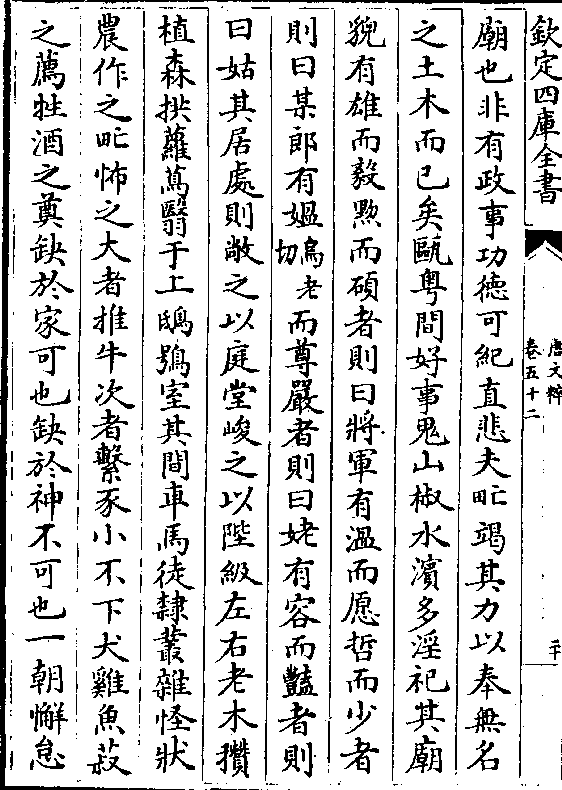 欽定四庫全書
唐文粹
卷五十二
二十
廟也非有政事功德可紀直悲夫甿竭其力以奉無名
之土木而已矣甌粤間好事鬼山椒水濵多淫祀其廟
貌有雄而毅黝而碩者則曰將軍有溫而愿哲而少者
則曰某郎有媪烏老切而尊嚴者則曰姥有容而豔者則
曰姑其居處則敞之以庭堂峻之以陛級左右老木攢
植森拱蘿蔦翳于上鴟鴞室其間車馬徒隸叢雜怪狀
農作之甿怖之大者推牛次者擊豕小不下犬雞魚菽
之薦牲酒之奠缺於家可也缺於神不可也一朝懈怠